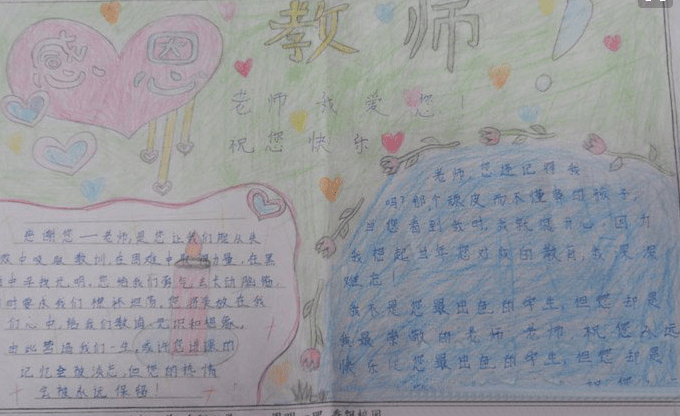 感恩
教师！
老师我爱您！
祝您快乐
感谢您——老师,是您让我们能从失
败中吸取教训,在困难中 力量,在黑
中寻找光明,您给我们勇气去大动脑筋,
时要求我们
们心中,给我们教诲、知识和想象。
由此 我们一生,或许您讲课的
记忆会被淡忘,但您的热情
会被永远保留!
老师,您还记得我
吗?那个顽皮而不懂事的孩子,
当您看到我时,我就很开心,因为
我想起当年您对我的教育,我深深
难忘!
我不是您最出色的学生,但您却是
我最崇敬的老师,老师,祝您永远
快乐 您最出色的学生,但您却是